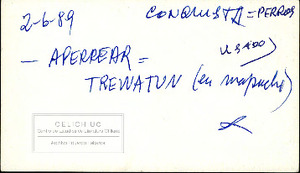 2-6-89
CONQUISTA = PERROS
USADO
— APERREAR =
TREWATUN (en mapuche)
CELICH UC
Centro de Estudios de Literatura Chilena